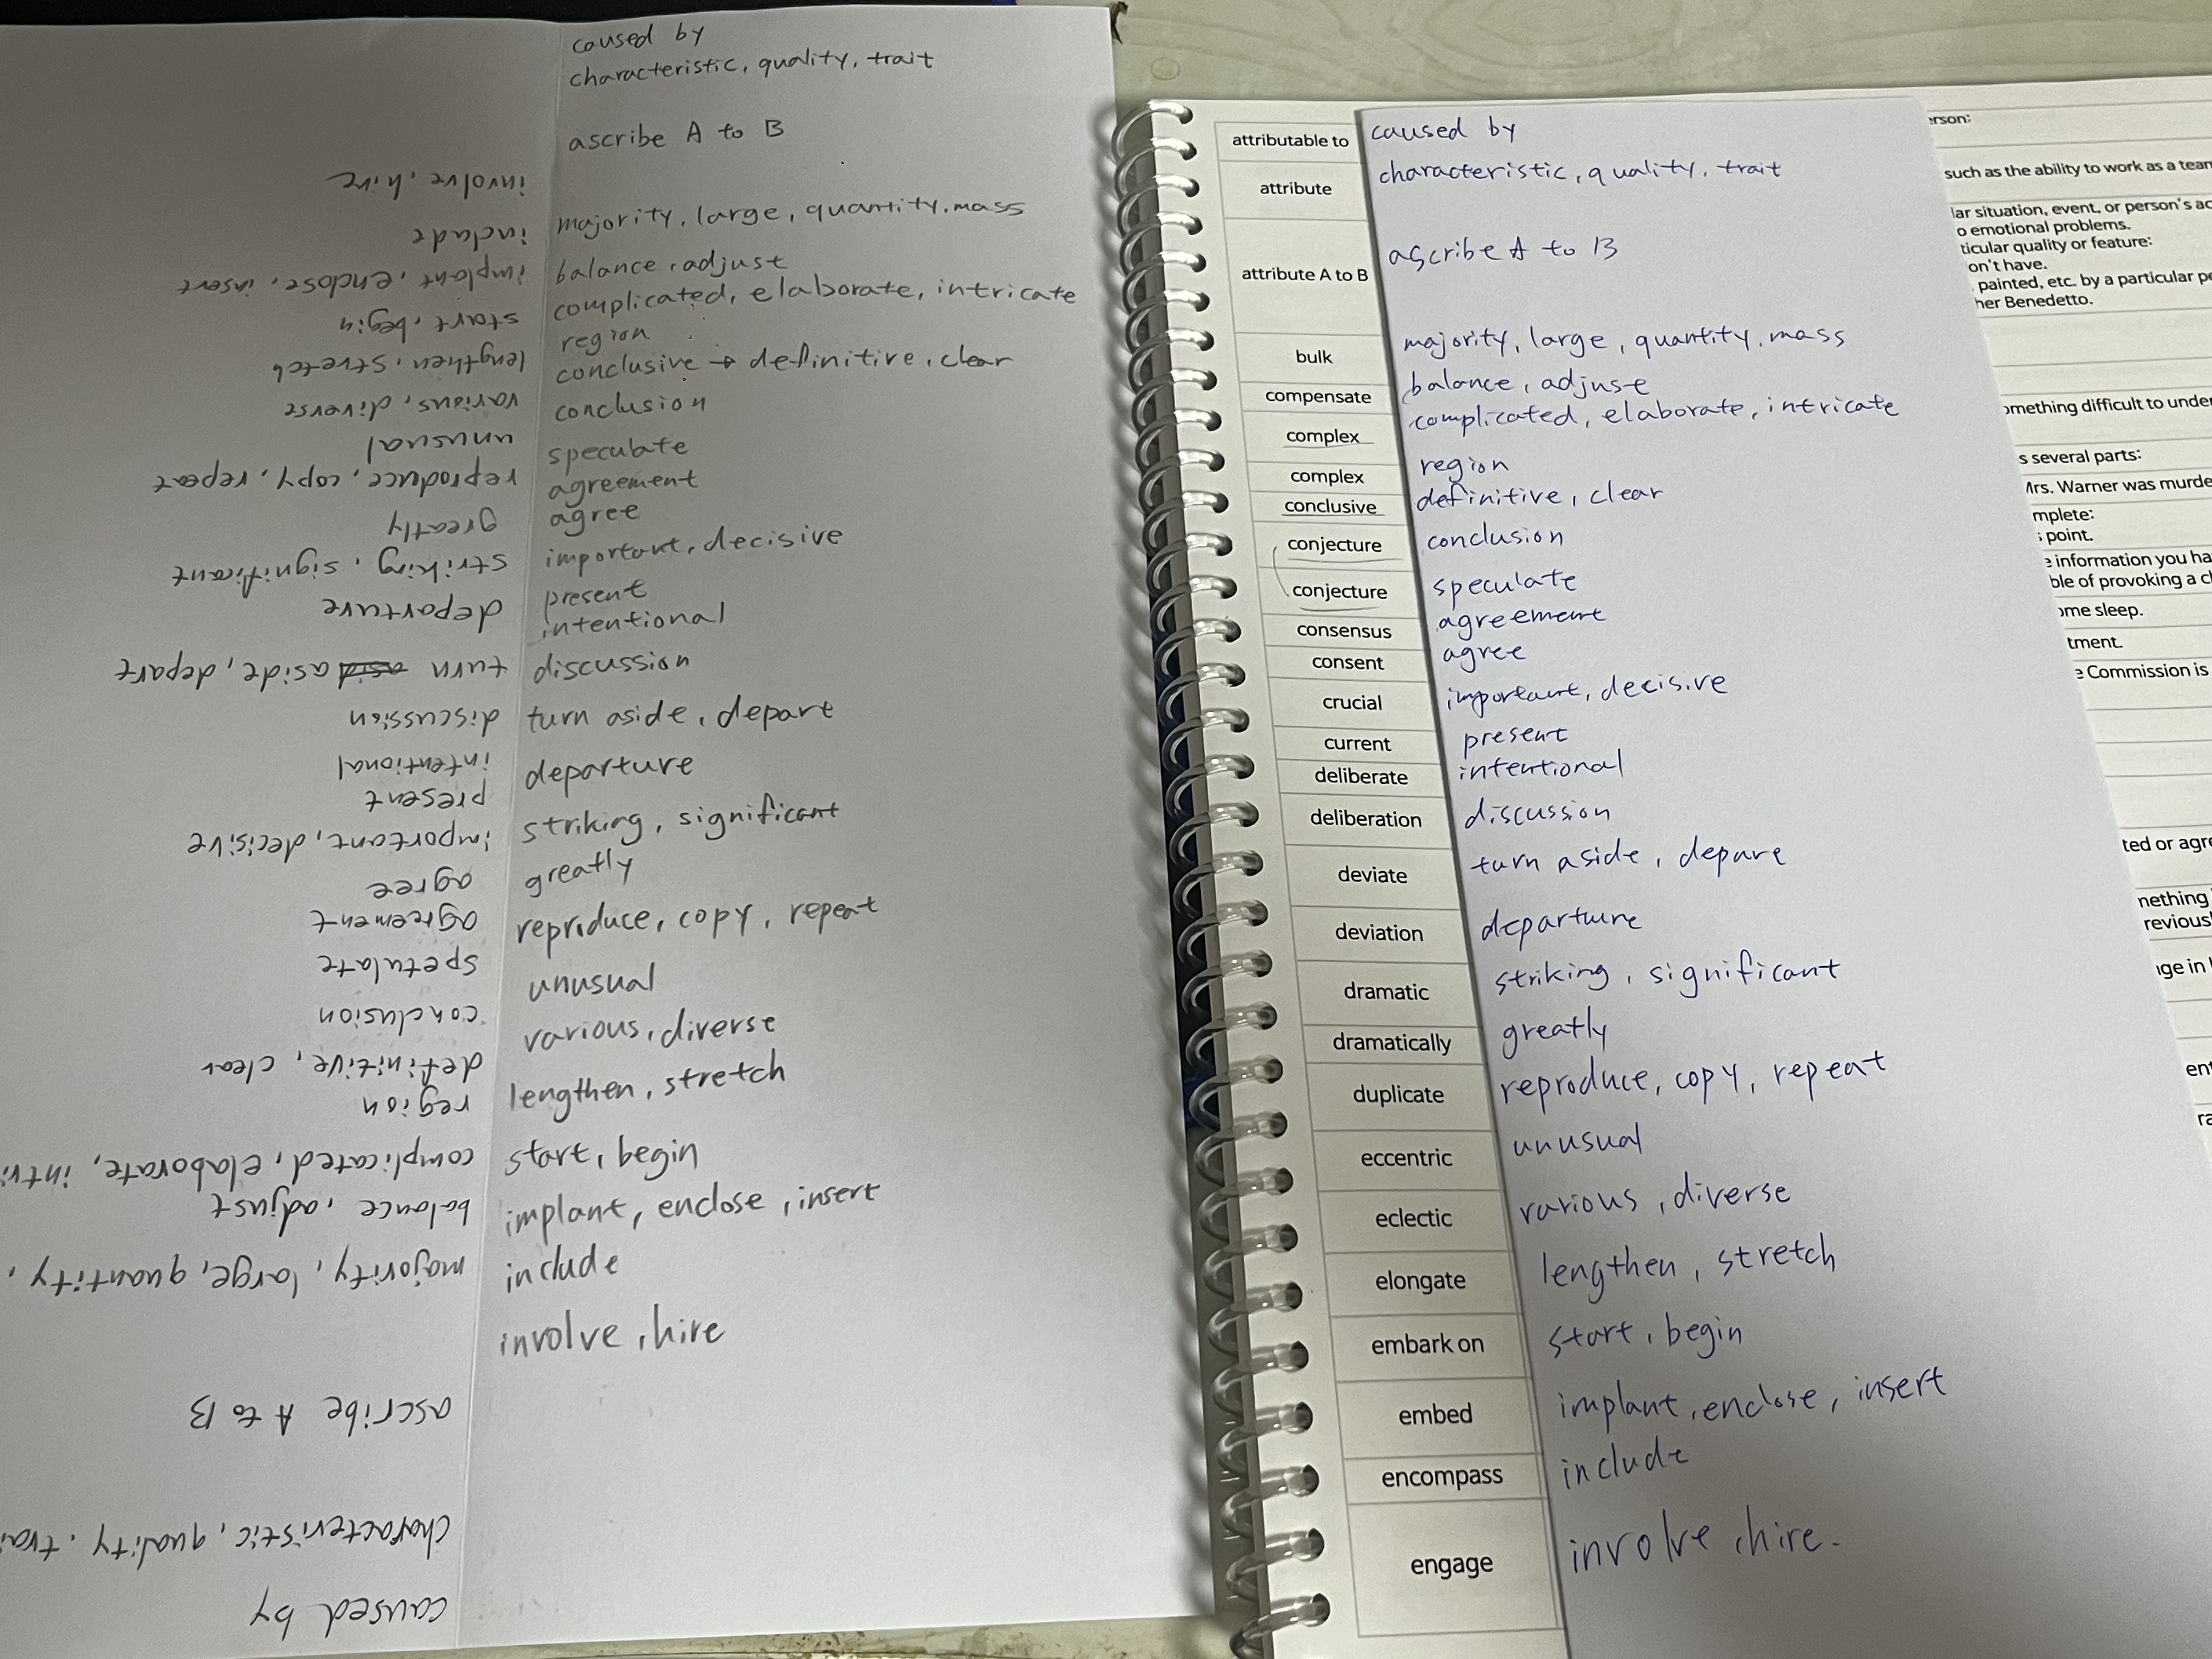 caused by
characteristic, quality, trait
ascribe A to B
majority, large, quantity, mass
balance, adjust
complicated, elaborate, intricate
region
conclusive → definitive, clear
conclusion
speculate
agreement
agree
important, decisive
present
intentional
discussion
turn aside, depart
departure
striking, significant
greatly
reproduce, copy, repeat
unusual
various, diverse
lengthen, stretch
start, begin
implant, enclose, insert
include
involve, hire
caused by
characteristic, quality, trai
ascribe A to B
majority, large, quantity,
balance, adjust
complicated, elaborate, intri
region
definitive, clear
conclusion
spetulate
agreement
agree
important, decisive
present
intentional
discussion
turn aside, depart
departure
striking, significant
greatly
reproduce, copy, repeat
unusual
various, diverse
lengthen, stretch
start, begin
implant, enclose, insert
include
involve, hire
attributable to caused by
attribute characteristic, quality, trait
attribute A to B ascribe A to B
bulk majority, large, quantity, mass
compensate balance, adjust
complex complicated, elaborate, intricate
complex region
conclusive definitive, clear
conjecture conclusion
conjecture speculate
consensus agreement
consent agree
crucial important, decisive
current present
deliberate intentional
deliberation discussion
deviate turn aside, depart
deviation departure
dramatic striking, significant
dramatically greatly
duplicate reproduce, copy, repeat
eccentric unusual
eclectic various, diverse
elongate lengthen, stretch
embark on start, begin
embed implant, enclose, insert
encompass include
engage involve, hire.
erson:
such as the ability to work as a team
lar situation, event, or person's ac
o emotional problems.
ticular quality or feature:
on't have.
painted, etc. by a particular pe
her Benedetto.
omething difficult to under
s several parts:
Mrs. Warner was murde
mplete:
point.
e information you ha
ble of provoking a cl
ome sleep.
tment.
e Commission is
ted or agre
nething
revious
nge in
ent
ra